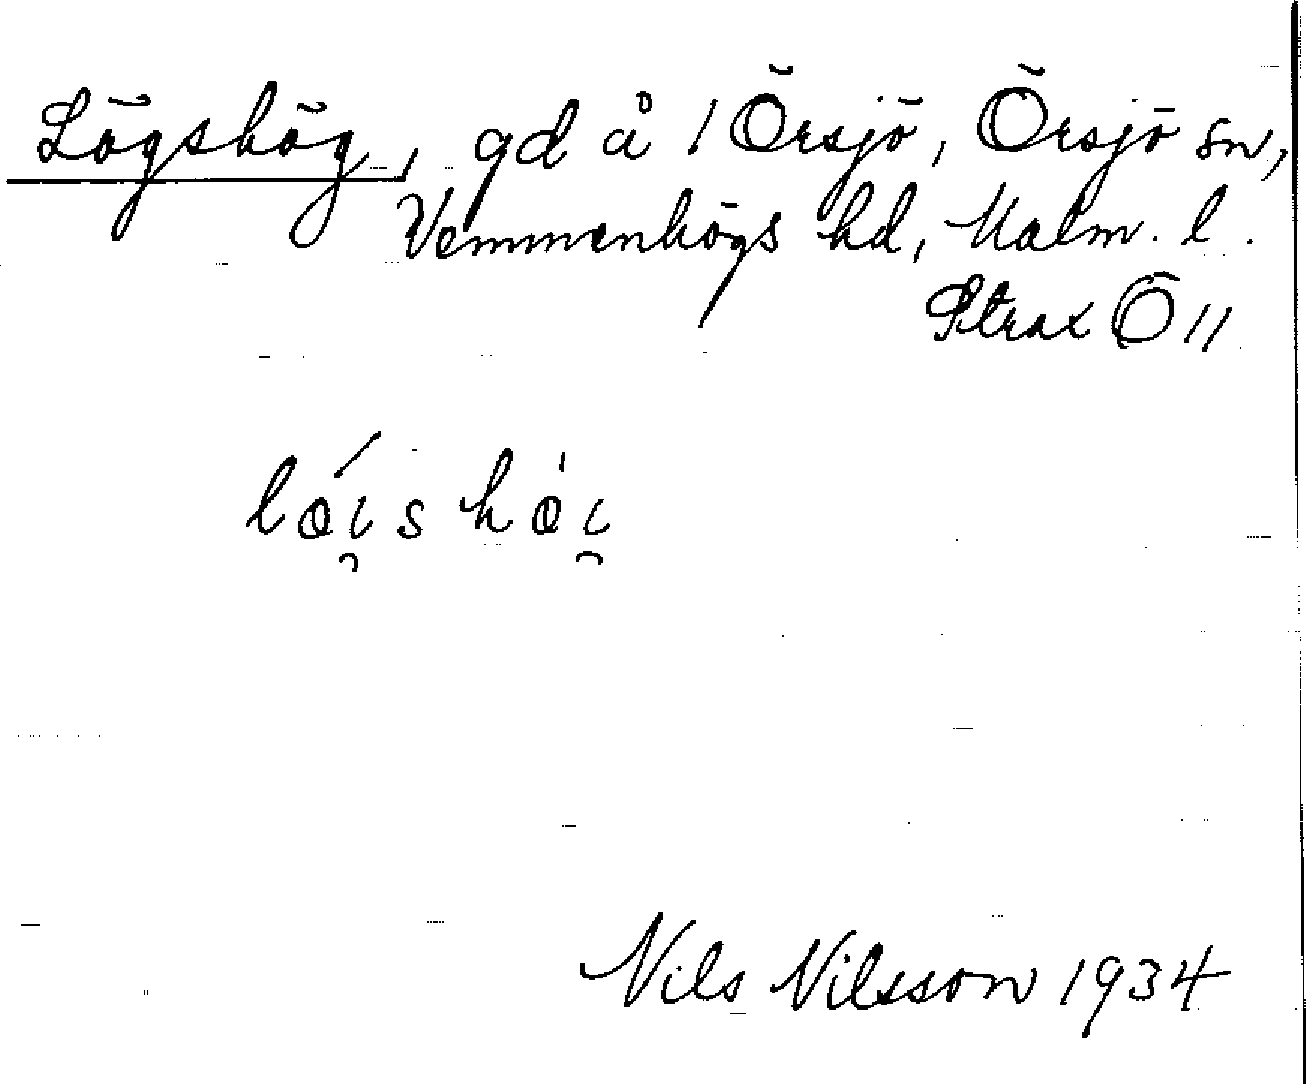 Lögshög, gd å 1 Örsjö, Örsjö sn,
Vemmenhögs hd, Malm. l.
Strax Ö 11
lǿi̯s hǿi̯
Nils Nilsson 1934